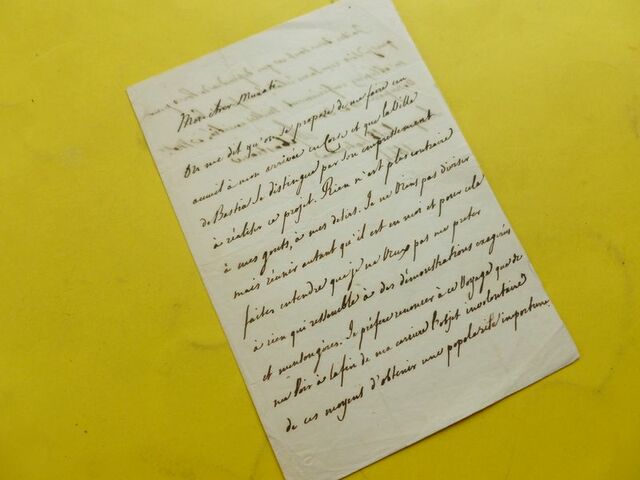 Mon cher Murati
On me dit qu'on se propose de me faire un
accueil à mon arrivée en Corse et que la Ville
de Bastia se distingue par son empressement
à réaliser ce projet. Rien n'est plus contraire
à mes gouts, à mes desirs. Je ne Viens pas diviser
mais réunir autant qu'il est en moi et pour cela
faites entendre que je ne Veux pas me preter
à rien qui ressemble à des démonstrations exagérées
et mensongères. Je préfère renoncer à ce Voyage que de
me Voir à la fin de ma carriere l'objet involontaire
de ces moyens d'obtenir une popularité importune